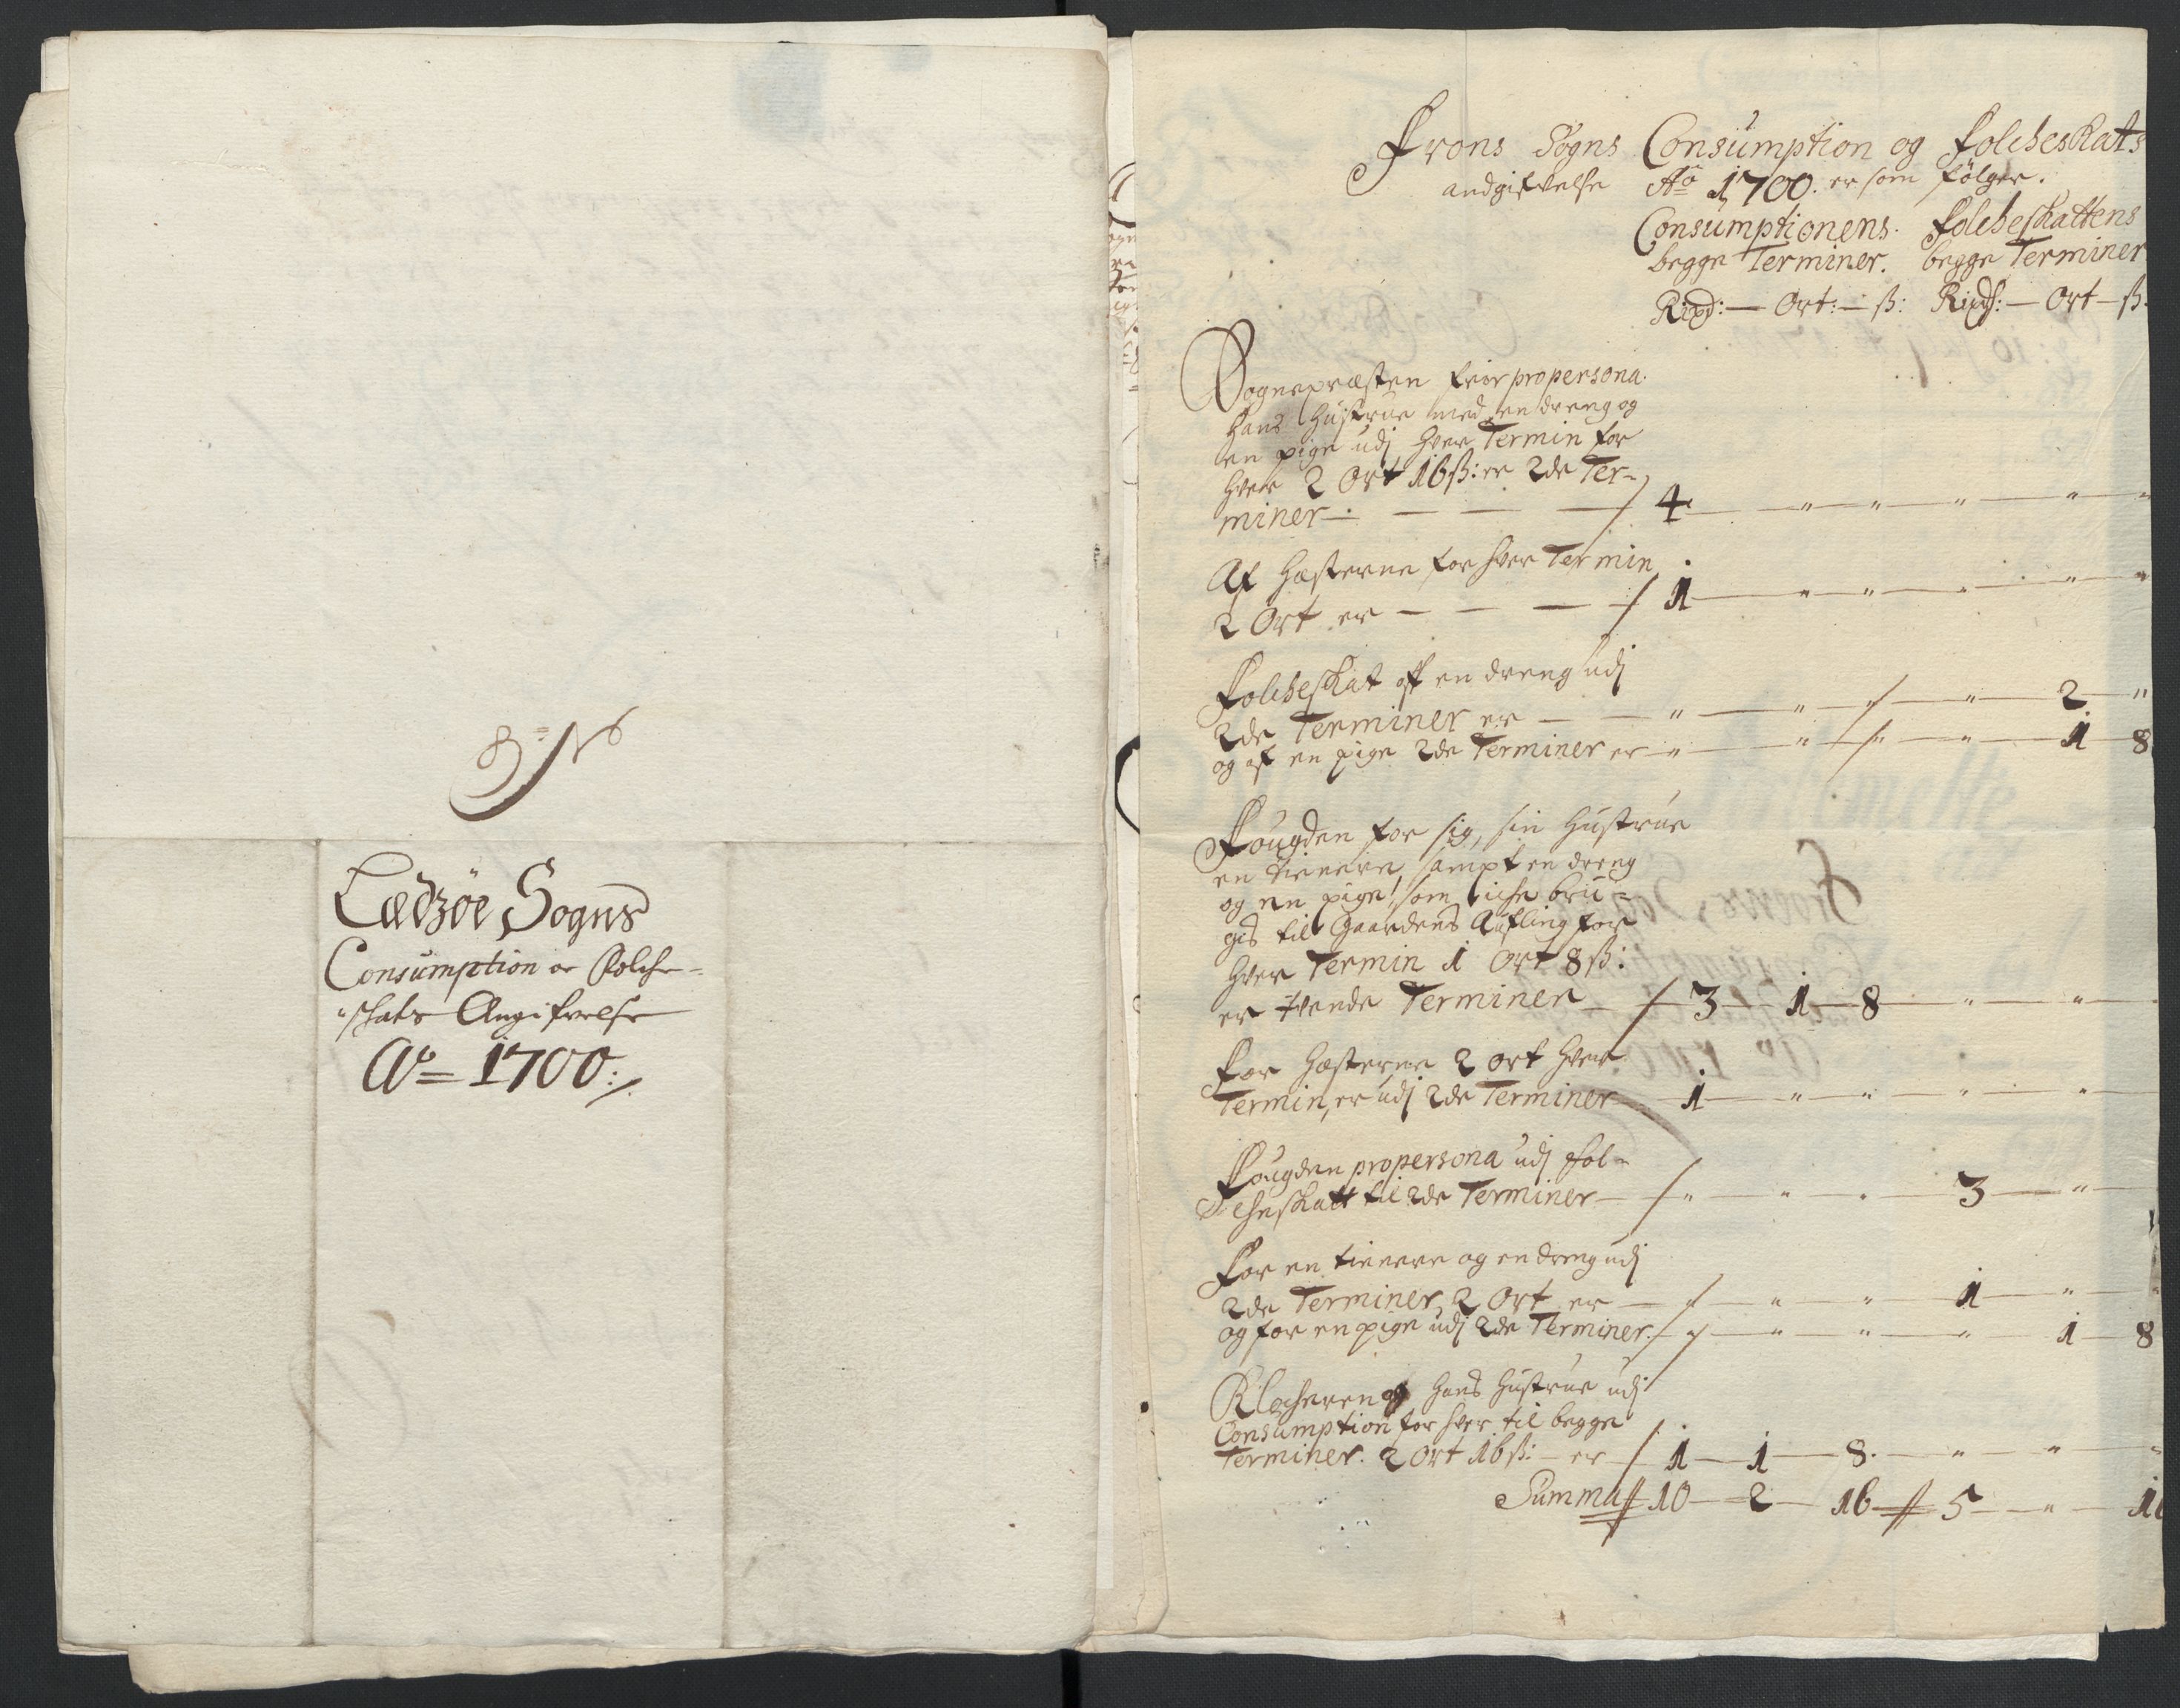 Lædzöe Sogns
Consumption oc Folche-
schats Angifvelse
Ao 1700:/.
Frons Sogns Consumption og Folcheskats
andgifvelse Ao 1700. er som følger.
Consumptionens. Folcheskattens
begge Terminer. begge Terminer
Rixd:— Ort:— ß: Rixdl:— Ort — ß.
Sognepræsten frie propersona.
hans hustrue med en dreng og
en pige udj hver Termin for
hver 2 Ort 16 ß: er 2de Ter-
miner — — — / 4 — " — " — " — " — "
Af hesterne for hver Termin
2 Ort er — — — / 1 — " — " — " — " — "
Folcheskat aff en dreng udj
2de Terminer er — — " — " — / — " — 2 — "
og af en pige 2de Terminer er — " — " — / " — " — 1 — 8
Fougden for sig, sin hustrue
en tienere, sampt en dreng
og en pige, som iche bru-
ges til Gaardens Aufling for
hver Termin 1 Ort 8 ß:
er tvende Terminer — / 3 — 1 — 8 — " — " —
For hesterne 2 ort hver
Termin, er udj 2de Terminer — 1 — " — " — " — " —
Fougden propersona udj Fol-
cheskatt til 2de Terminer — / " — " — " — 3 — " —
For en tienere og en dreng udj
2de Terminer, 2 Ort er — / — " — " — 1 — " —
og for en pige udj 2de Terminer. / " — " — " — " — 1 — 8
Klocheren og hans hustrue udj
Consumption for hver til begge
Terminer. 2 Ort 16 ß: — er — / 1 — 1 — 8. — " — " — "
Summa // 10 — 2 — 16 // 5 — " —